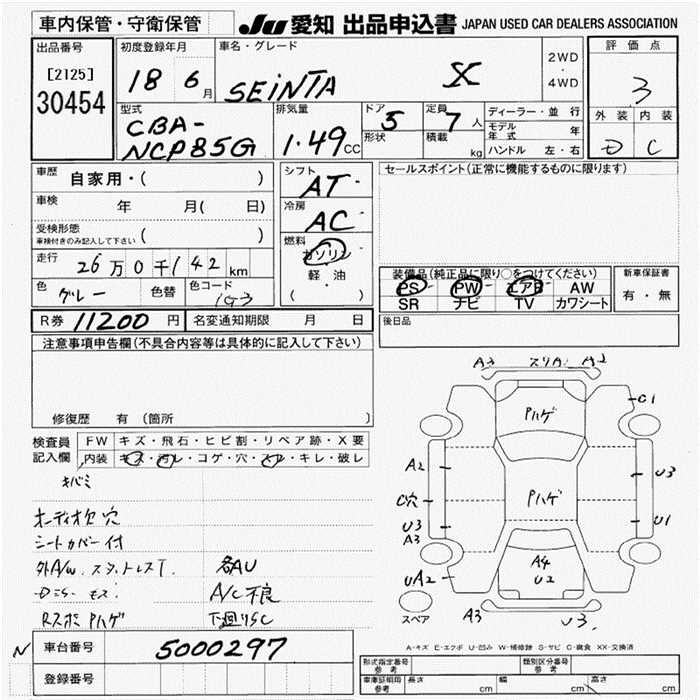 車内保管・守衛保管 JU 愛知 出品申込書 JAPAN USED CAR DEALERS ASSOCIATION
出品番号 [2125] 30454
初度登録年月 18 6月
車名・グレード SEiNTA X
2WD ・ 4WD
評価点 3
外装 内装 D C
型式 CBA-NCP85G
排気量 1.49CC
ドア 5 形状
定員 7人 積載 kg
ディーラー・並行
モデル年式 年
ハンドル 左・右
車歴 自家用・( )
車検 年 月( 日)
受検形態 車検付きのみ記入して下さい ( )
走行 26万0千142km
色 グレー 色替 色コード 1G3
シフト AT
冷房 AC
燃料 ガソリン 軽油 ( ・ )
セールスポイント(正常に機能するものに限ります)
装備品(純正品に限り○をつけてください)
PS PW エアB AW
SR ナビ TV カワシート
新車保証書 有・無
R券 11200円 名変通知期限 月 日
後日品
注意事項申告欄(不具合内容等は具体的に記入して下さい)
修復歴 有 (箇所
検査員記入欄 FW キズ・飛石・ヒビ割・リペア跡・X要
内装 キズ・汚レ・コゲ・穴・スレ・キレ・破レ
キバミ
オーディオ欠 穴
シートカバー付
外A/W スタットレスT. 各AU
A/C不良
Rスポ Pハゲ 下廻りSC
N 車台番号 5000297
登録番号
A2 スリA A2
Pハゲ
C1
A2
U3
Pハゲ
C穴
U3
A3
U1
A4
U2
UA2
スペア
A3
U3
A-キズ E-エクボ U-凹み W-補修跡 S-サビ C-腐食 XX-交換済
形式指定番号 参考 類別区分番号 参考
車庫証明用 参考 長さ cm 幅 cm 高さ cm